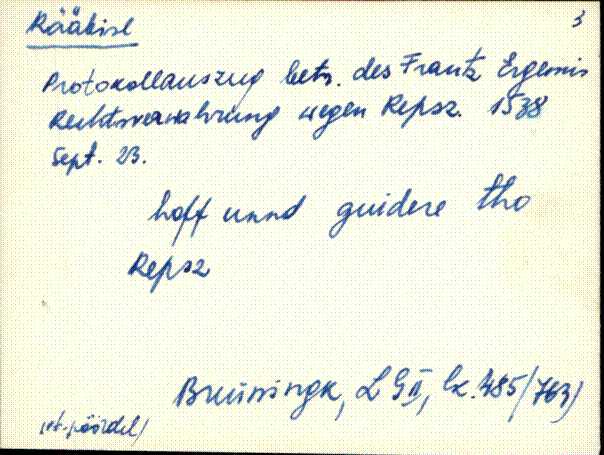 Rääbise 3
Protokollauszug betr. des Frantz
Rechtsverwahrung wegen Repsz. 1538
Sept. 23.
hoff unnd guidere tho
Repsz
Bruiningk, LG II, lk. 485/763)